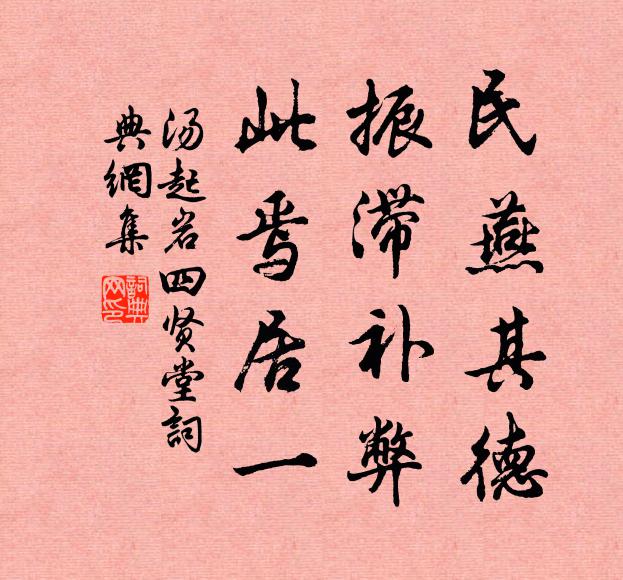 民燕其德
振滞补弊
此焉居一
汤起岩四贤堂詞
典網集
詞典網印